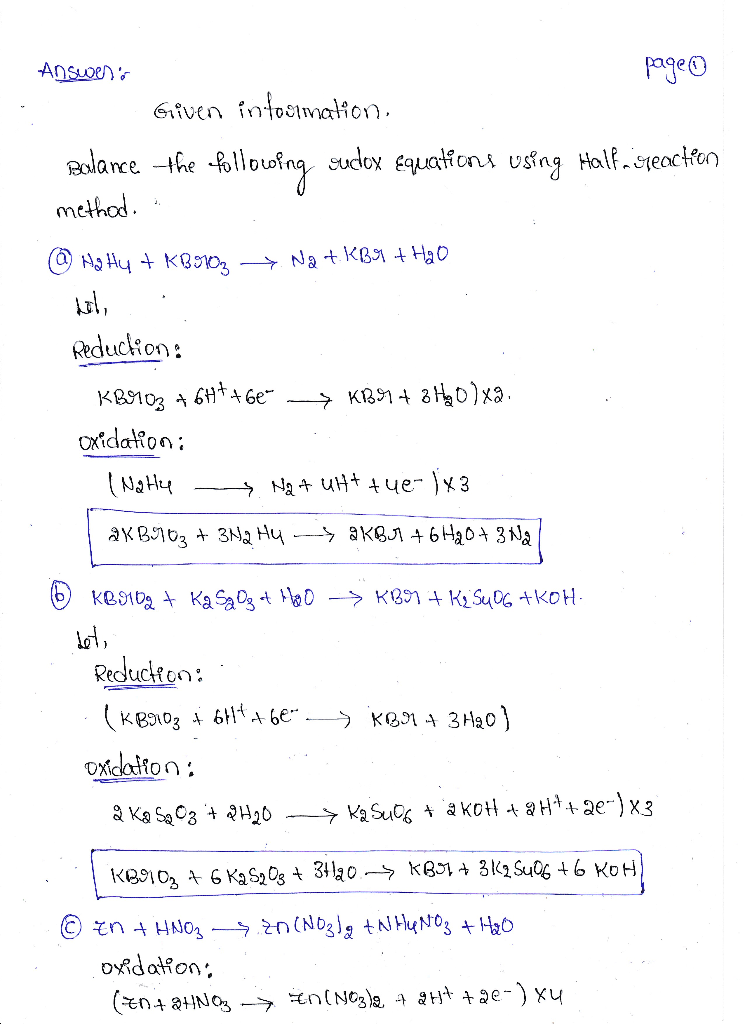 Answer:-
page ①
Given information.
Balance the following redox Equations using Half-reaction
method.
ⓐ N2H4 + KBrO3 → N2 + KBr + H2O
Let,
Reduction:
KBrO3 + 6H+ + 6e- → KBr + 3H2O)x2.
oxidation:
(N2H4 → N2 + 4H+ + 4e-)x3
2KBrO3 + 3N2H4 → 2KBr + 6H2O + 3N2
ⓑ KBrO2 + K2S2O3 + H2O → KBr + K2S4O6 + KOH.
Let,
Reduction:
(KBrO3 + 6H+ + 6e- → KBr + 3H2O)
oxidation:
2K2S2O3 + 2H2O → K2S4O6 + 2KOH + 2H+ + 2e-)x3
KBrO3 + 6K2S2O3 + 3H2O → KBr + 3K2S4O6 + 6KOH
ⓒ Zn + HNO3 → Zn(NO3)2 + NH4NO3 + H2O
oxidation:
(Zn + 2HNO3 → Zn(NO3)2 + 2H+ + 2e-)x4